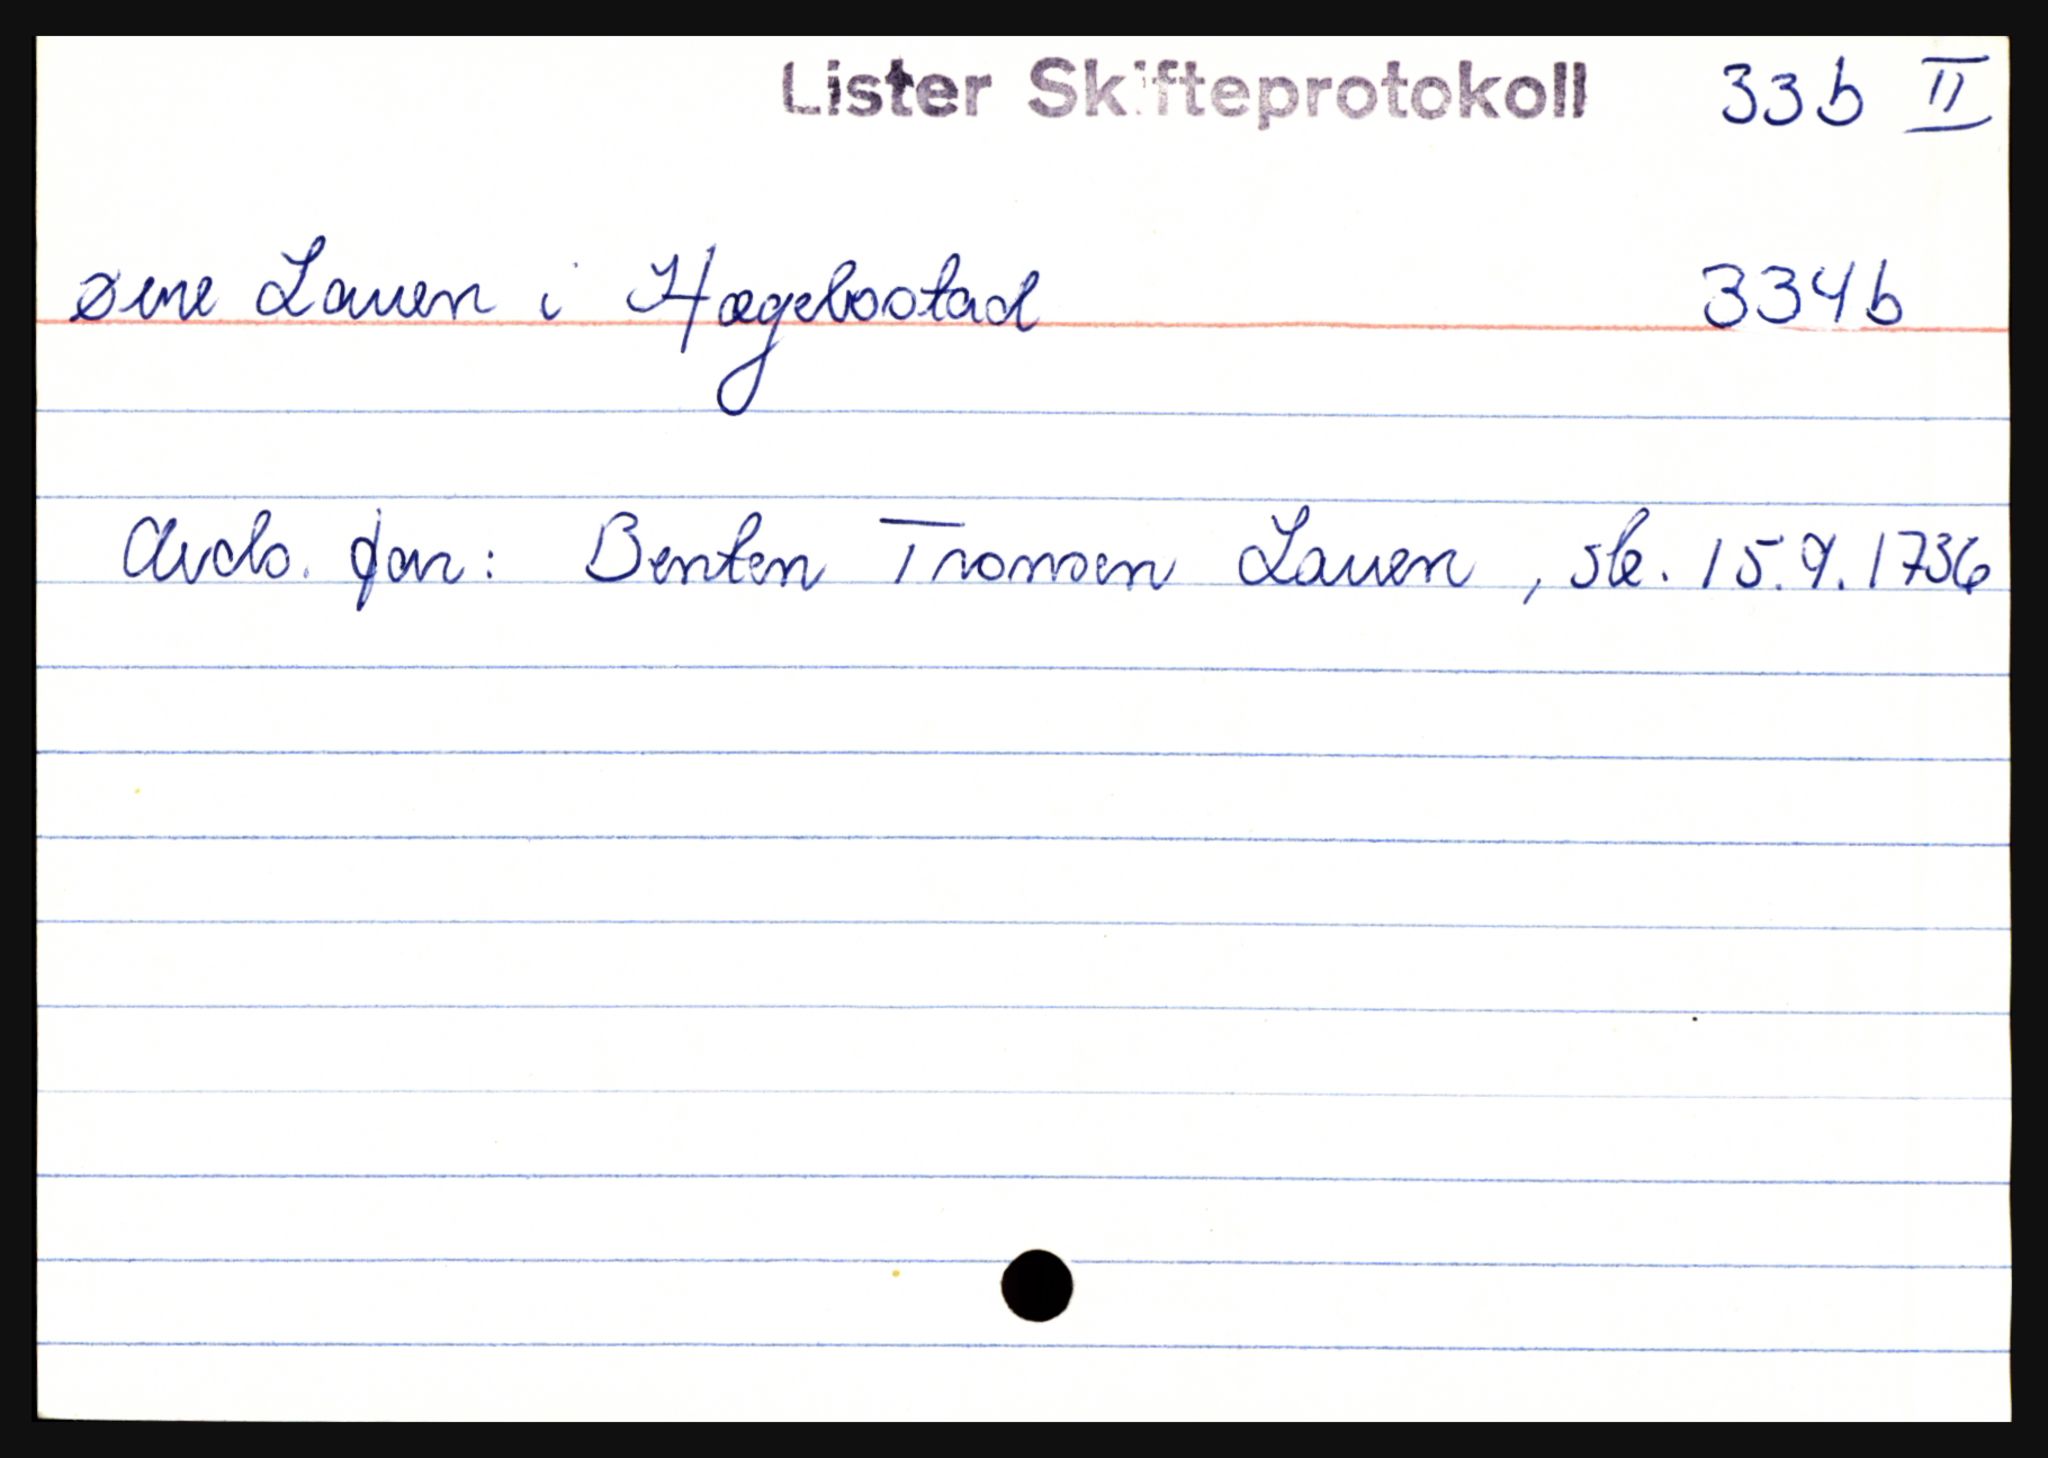 Lister Skifteprotokoll 33b II
Øvre Lauen i Hægebostad 334b
Avdo. far: Benten Tromsen Lauen, sk. 15.9.1736